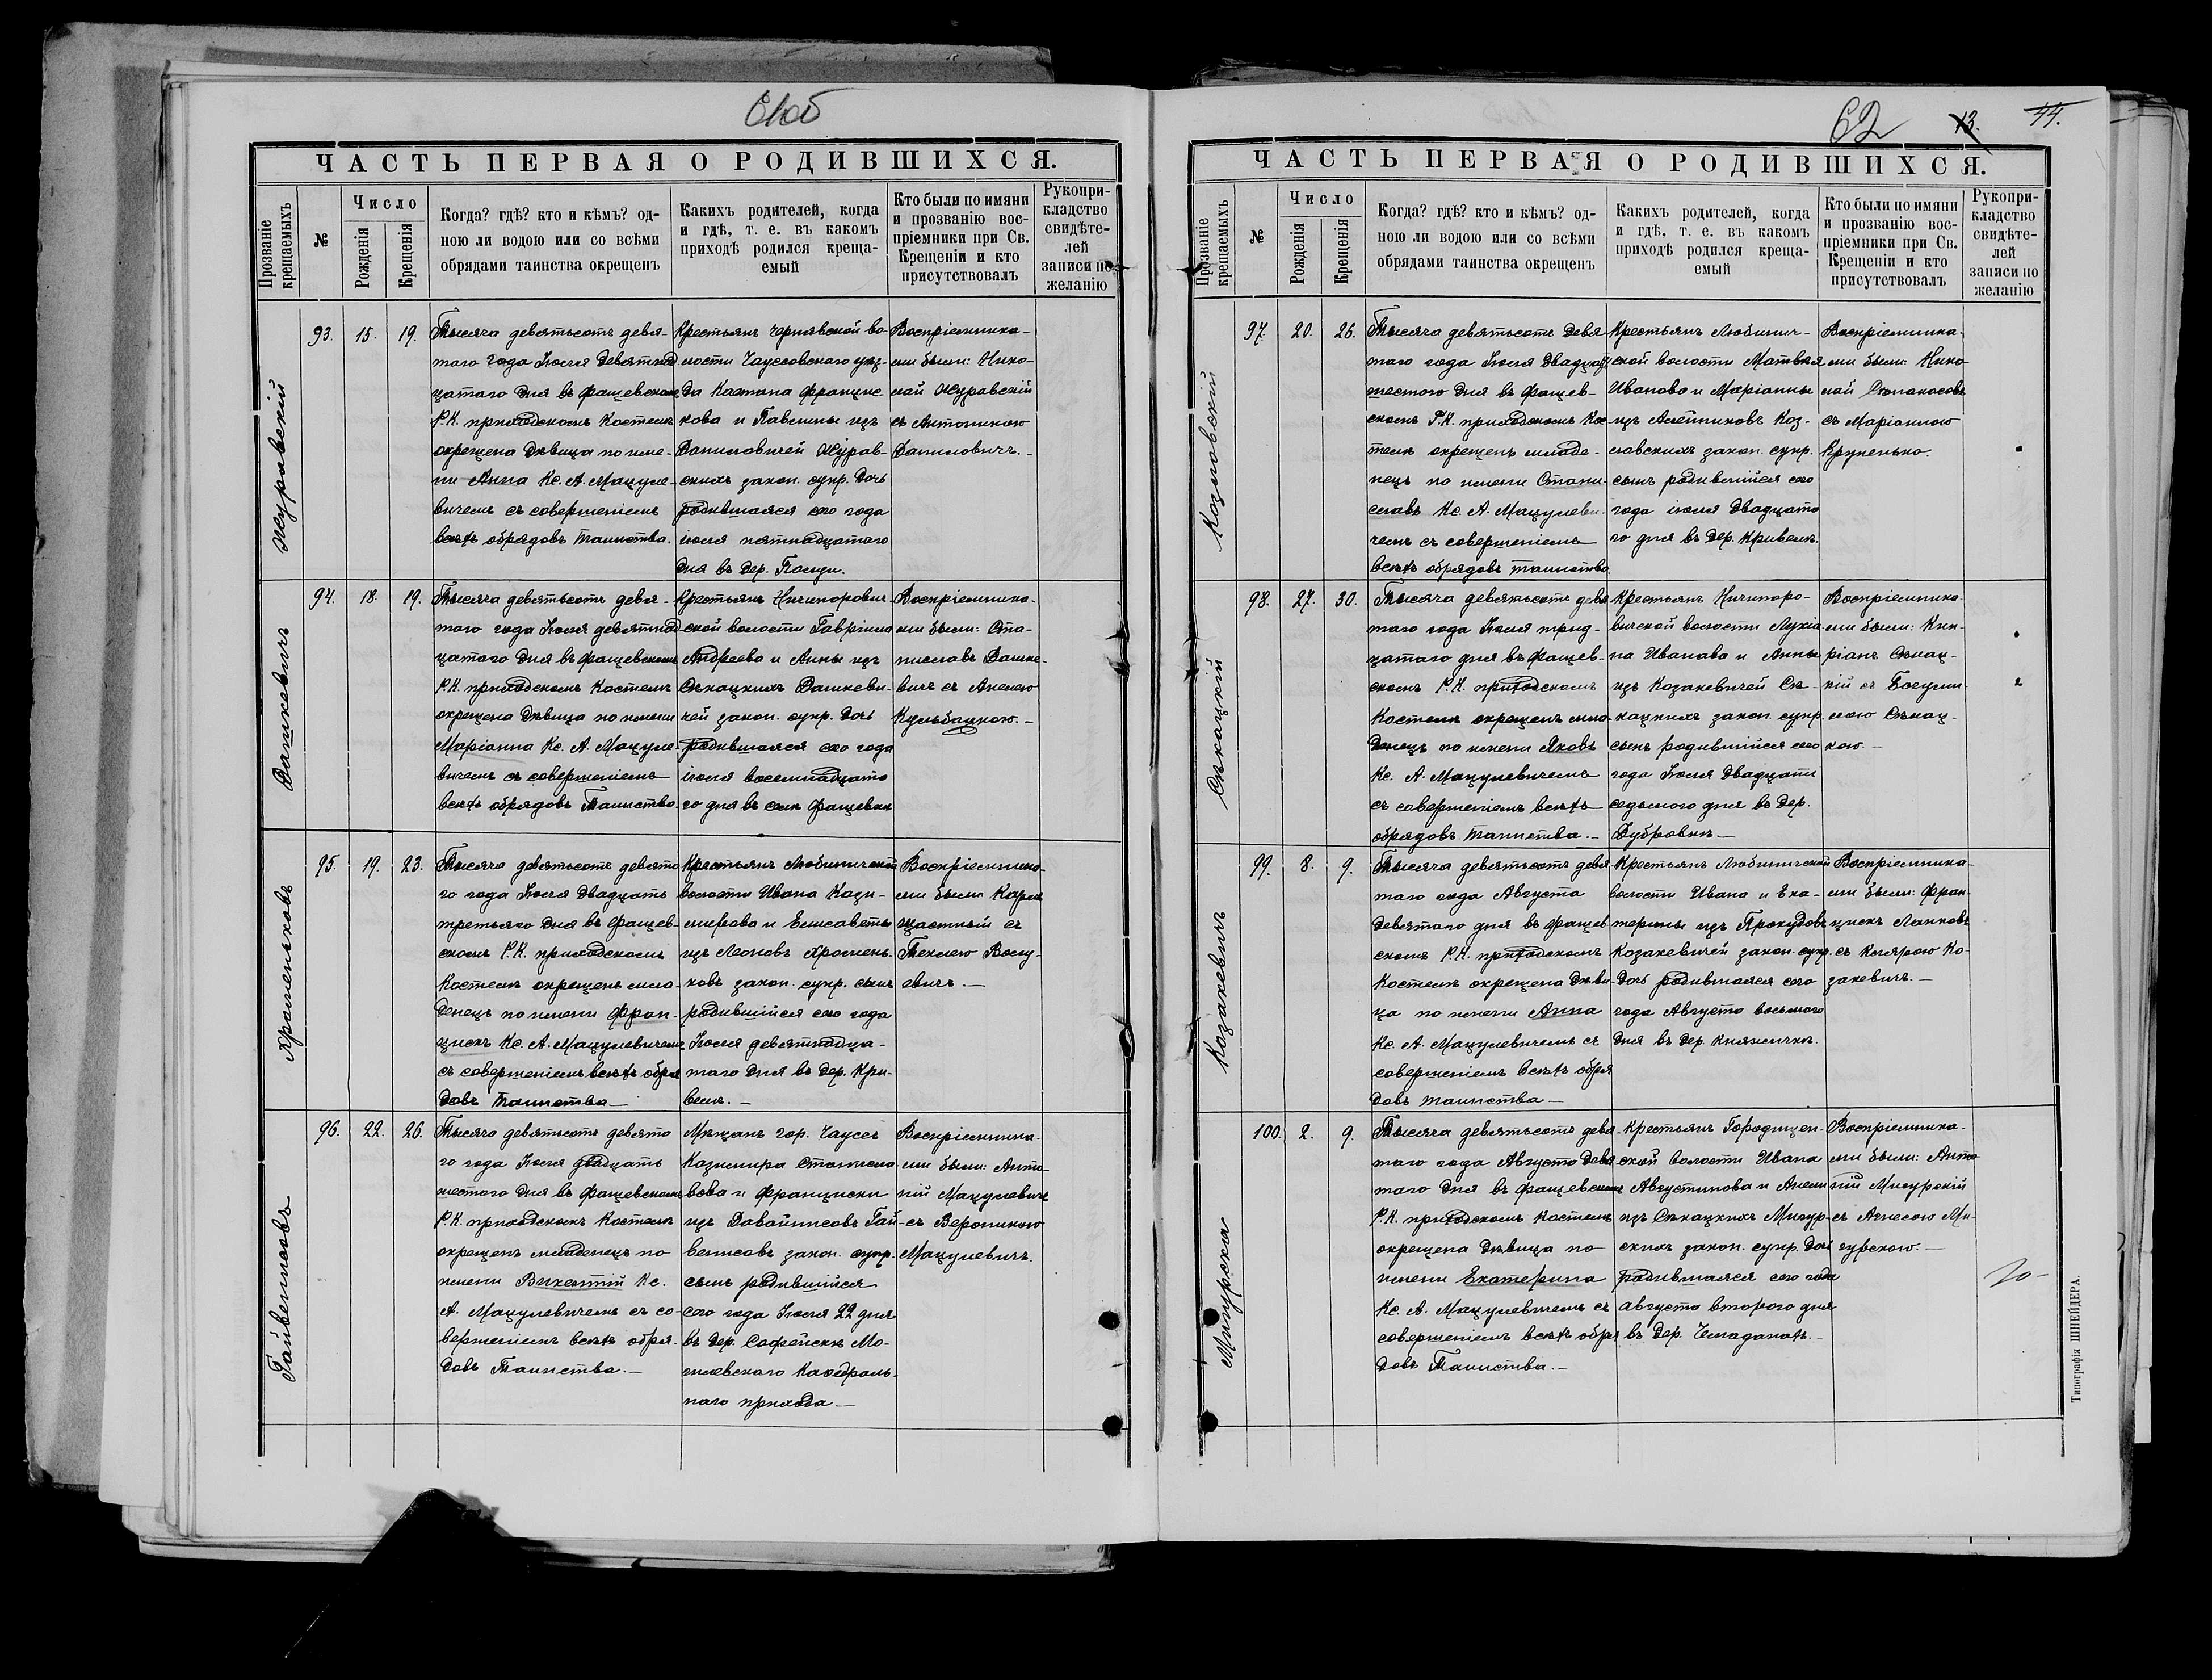 61об
ЧАСТЬ ПЕРВАЯ О РОДИВШИХСЯ.
Прозваніе крещаемыхъ
№
Число
Рожденія
Крещенія
Когда? гдѣ? кто и кѣмъ? од-
ною ли водою или со всѣми
обрядами таинства окрещенъ
Какихъ родителей, когда
и гдѣ, т. е. въ какомъ
приходѣ родился креща-
емый
Кто были по имяни
и прозванію вос-
пріемники при Св.
Крещеніи и кто
присутствовалъ
Рукопри-
кладство
свидѣте-
лей
записи по
желанію
Журавскій
93. 15. 19.
Тысяча девятьсотъ девя-
таго года Іюля девятнад
цатаго дня въ Фащевскомъ
Р.К. приходскомъ Костелѣ
окрещена дѣвица по име-
ни Анна Кс. А. Мацуле-
вичемъ съ совершеніемъ
всѣхъ обрядовъ Таинства.
Крестьянъ Чернявской во-
лости Чаусовского уѣз-
да Костана Францис
кова и Павлины изъ
Даниловичей Журав-
скихъ закон. супр. дочь
родившаяся сего года
іюля пятнадцатаго
дня въ дер. Полци.
Воспріемника-
ми были: Нико-
лай Журавскій
съ Антониною
Даниловичъ.-
Дашкевичъ
94. 18. 19.
Тысяча девятьсотъ девя-
таго года Іюля девятнад
цатаго дня въ Фащевскомъ
Р.К. приходскомъ Костелѣ
окрещена дѣвица по имени
Маріанна Кс. А. Мацуле-
вичемъ съ совершеніемъ
всѣхъ обрядовъ Таинства.
Крестьянъ Ничипорович-
ской волости Гавріила
Андреева и Анны изъ
Сѣкацкихъ Дашкеви-
чей закон. супр. дочь
родившаяся сего года
іюля восемнадцато
го дня въ селѣ Фащевкѣ
Воспріемника-
ми были: Ста-
ниславъ Дашке-
вичъ съ Анелею
Кульбацкою.-
Храменьковъ
95. 19. 23.
Тысяча девятьсотъ девято
го года Іюля двадцать
третьяго дня въ Фащев-
скомъ Р.К. приходскомъ
Костелѣ окрещенъ мла-
денецъ по имени Фран-
цискъ Кс. А. Мацулевичемъ
съ совершеніемъ всѣхъ обря
довъ Таинства-
Крестьянъ Любиничской
волости Ивана Кази-
мірова и Елисаветы
изъ Леоновъ Хромень-
ковъ закон. супр. сынъ
родившійся сего года
Іюля девятнадца-
таго дня въ дер. Кри-
вели.-
Воспріемника-
ми были: Карлъ
Щастный съ
Теклею Восу-
евичъ.-
Гайвенисовъ
96. 22. 26.
Тысяча девятьсотъ девято
го года Іюля двадцать
шестого дня въ Фащевскомъ
Р.К. приходскомъ Костелѣ
окрещенъ младенецъ по
имени Викентій Кс.
А. Мацулевичемъ съ со-
вершеніемъ всѣхъ обря-
довъ Таинства.-
Мѣщанъ гор. Чаусъ
Казимира Станисла
вова и Франциски
изъ Давойнисовъ Гай-
венисовъ закон. супр.
сынъ родившійся
сего года Іюля 22 дня
въ дер. Софейскѣ Мо-
гилевскаго Каѳедраль-
наго прихода-
Воспріемника-
ми были: Анто-
ній Мацулевичъ
съ Вероникою
Мацулевичъ.
62 13. 44.
ЧАСТЬ ПЕРВАЯ О РОДИВШИХСЯ.
Прозваніе крещаемыхъ
№
Число
Рожденія
Крещенія
Когда? гдѣ? кто и кѣмъ? од-
ною ли водою или со всѣми
обрядами таинства окрещенъ
Какихъ родителей, когда
и гдѣ, т. е. въ какомъ
приходѣ родился креща-
емый
Кто были по имяни
и прозванію вос-
пріемники при Св.
Крещеніи и кто
присутствовалъ
Рукопри-
кладство
свидѣте-
лей
записи по
желанію
Козловскій
97. 20. 26.
Тысяча девятьсотъ девя
таго года Іюля двадцать
шестого дня въ Фащев-
скомъ Р.К. приходскомъ Кос
телѣ окрещенъ младе-
нецъ по имени Стани-
славъ Кс. А. Мацулеви-
чемъ съ совершеніемъ
всѣхъ обрядовъ таинства
Крестьянъ Любинич-
ской волости Матвѣя
Иванова и Маріанны
изъ Алейниковъ Коз-
ловскихъ закон. супр.
сынъ родившійся сего
года іюля двадцато
го дня въ дер. Кривелѣ.
Воспріемника-
ми были: Нико
лай
съ Маріанною
Крупенько.
Сѣкацкій
98. 27. 30.
Тысяча девятьсотъ девя
таго года Іюля трид-
цатаго дня въ Фащев-
скомъ Р.К. приходскомъ
Костелѣ окрещенъ мла-
денецъ по имени Яковъ
Кс. А. Мацулевичемъ
съ совершеніемъ всѣхъ
обрядовъ таинства.-
Крестьянъ Ничипоро-
вичской волости Лукіа-
на Иванова и Анны
изъ Козакевичей Сѣ-
кацкихъ закон. супр.
сынъ родившійся сего
года Іюля двадцати
седьмого дня въ дер.
Дубровкѣ-
Воспріемника-
ми были: Кип-
ріанъ Сѣкац-
кій съ Богуми-
лою Сѣкац-
кою.-
Козакевичъ
99. 8. 9.
Тысяча девятьсотъ девя
таго года Августа
девятаго дня въ Фащев
скомъ Р.К. приходскомъ
Костелѣ окрещена дѣви-
ца по имени Анна
Кс. А. Мацулевичемъ съ
совершеніемъ всѣхъ обря
довъ таинства-
Крестьянъ Любиничской
волости Ивана и Ека-
терины изъ Прокудовъ
Козакевичей закон. супр.
дочь родившаяся сего
года Августа восьмого
дня въ дер. Княжичкѣ.
Воспріемника-
ми были: Фран-
цискъ Лапковъ
съ Клярою Ко-
закевичъ.-
Мигурска
100. 2. 9.
Тысяча девятьсотъ девя-
таго года Августа девя
таго дня въ Фащевскомъ
Р.К. приходскомъ Костелѣ
окрещена дѣвица по
имени Екатерина
Кс. А. Мацулевичемъ съ
совершеніемъ всѣхъ обря
довъ Таинства.-
Крестьянъ Городищен-
ской волости Ивана
Августинова и Анели
изъ Сѣкацкихъ Мигур-
скихъ закон. супр. дочь
родившаяся сего года
августа второго дня
въ дер. Чемаданахъ.-
Воспріемника-
ми были: Анто
ній Мигурскій
съ Агнесою Ми-
гурскою.-
Типографія ШНЕЙДЕРА.